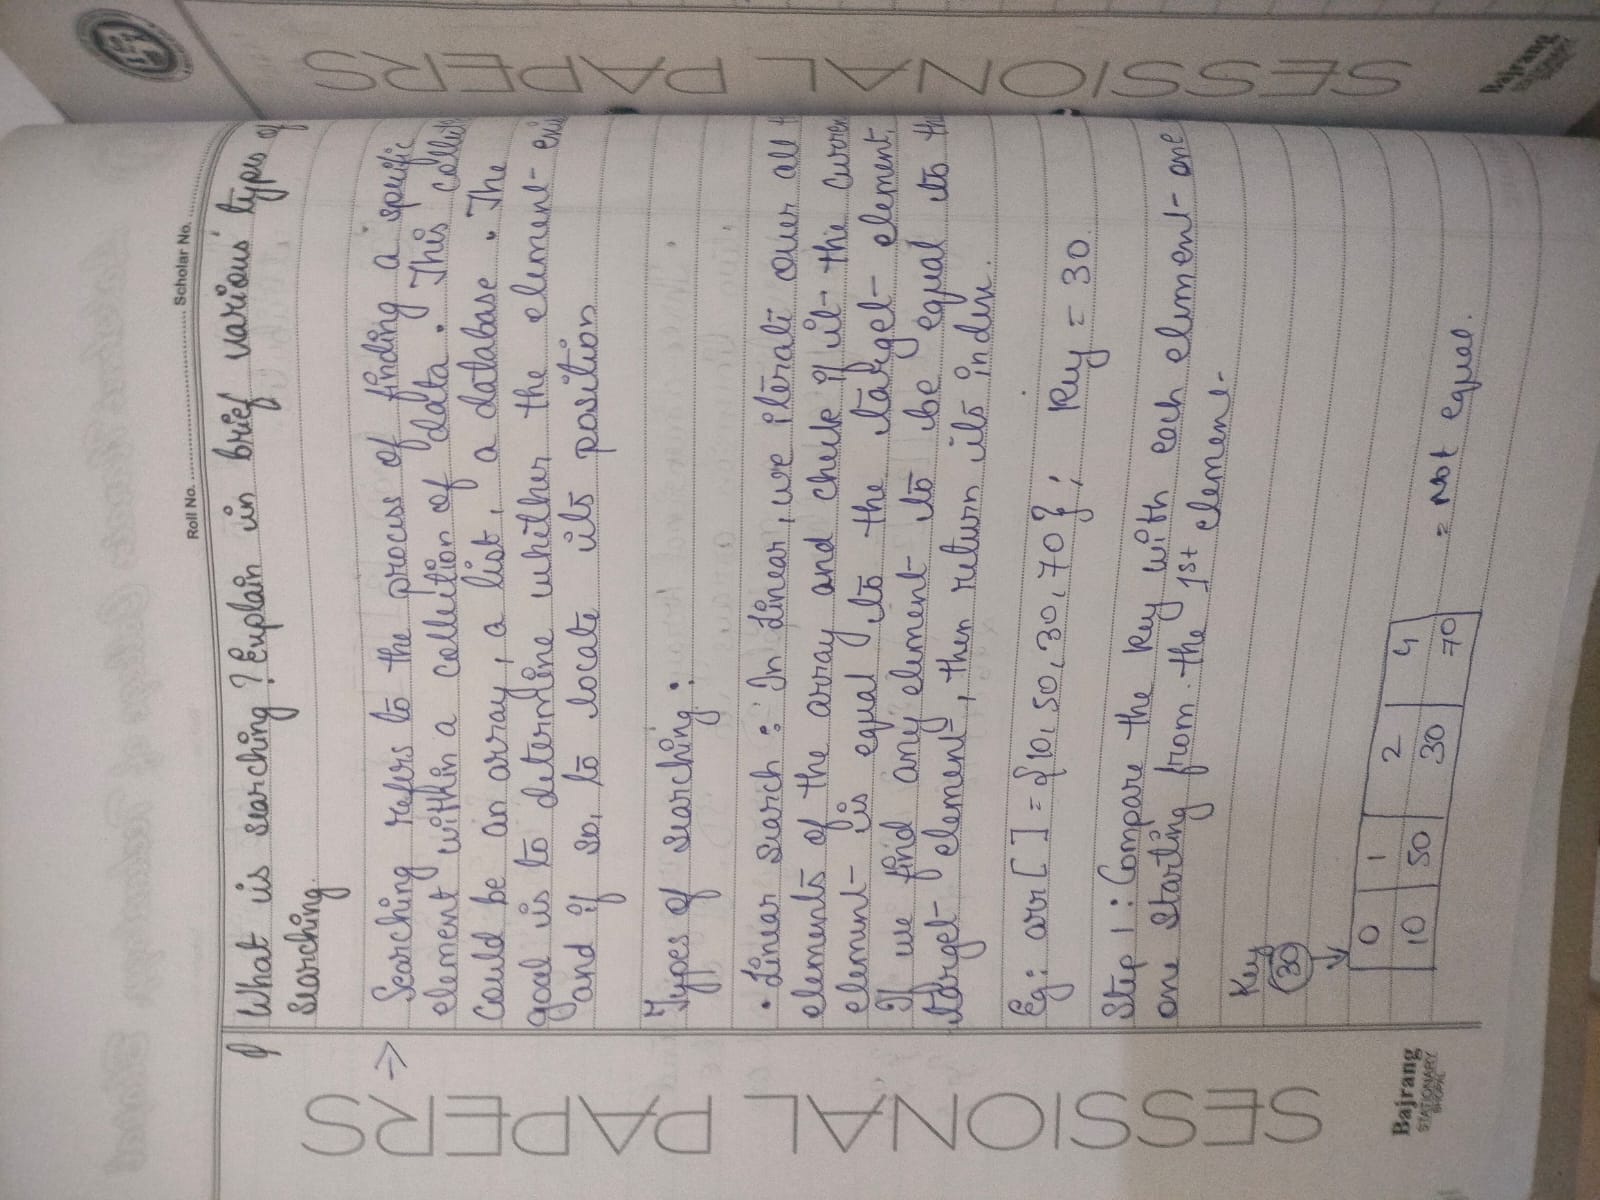 Roll No. .................... Scholar No. ............
Q What is searching? Explain in brief various types of
searching.
→ Searching refers to the process of finding a specific
element within a collection of data. This collecti
could be an array, a list, a database. The
goal is to determine whether the element exis
and if so, to locate its position
Types of searching :
• Linear search : In Linear, we iterate over all t
elements of the array and check if it the curren
element is equal to the target element.
If we find any element to be equal to th
target element, then return its index.
Eg: arr [ ] = {10, 50, 30, 70}; Key = 30.
Step 1 : Compare the key with each element one
one starting from the 1st element
Key
30
0 1 2 4
10 50 30 70 = Not equal.
SESSIONAL PAPERS
Bajrang
STATIONARY
BHOPAL
SESSIONAL PAPERS
Bajrang